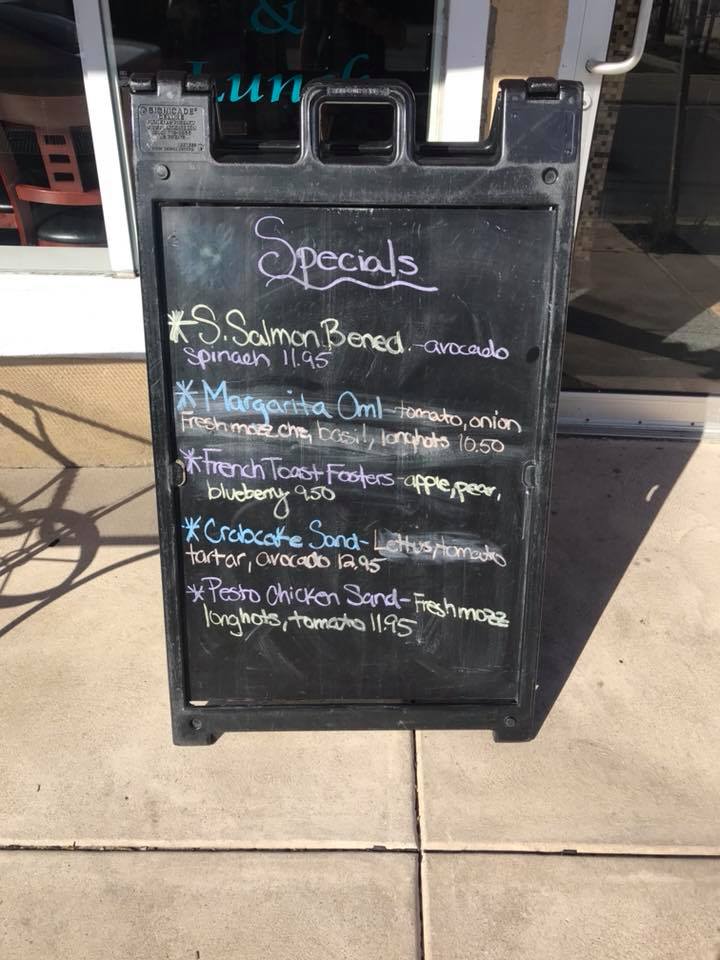 &
Lunch
SIGNICADE
DELUXE
Specials
* S. Salmon Bened. - avocado
spinach 11.95
* Margarita Oml - tomato, onion
Fresh mozz che, basil, longhots 10.50
* French Toast Fosters - apple, pear,
blueberry 9.50
* Crabcake Sand - Lettus, tomato
tartar, avocado 12.95
* Pesto Chicken Sand - Fresh mozz
longhots, tomato 11.95